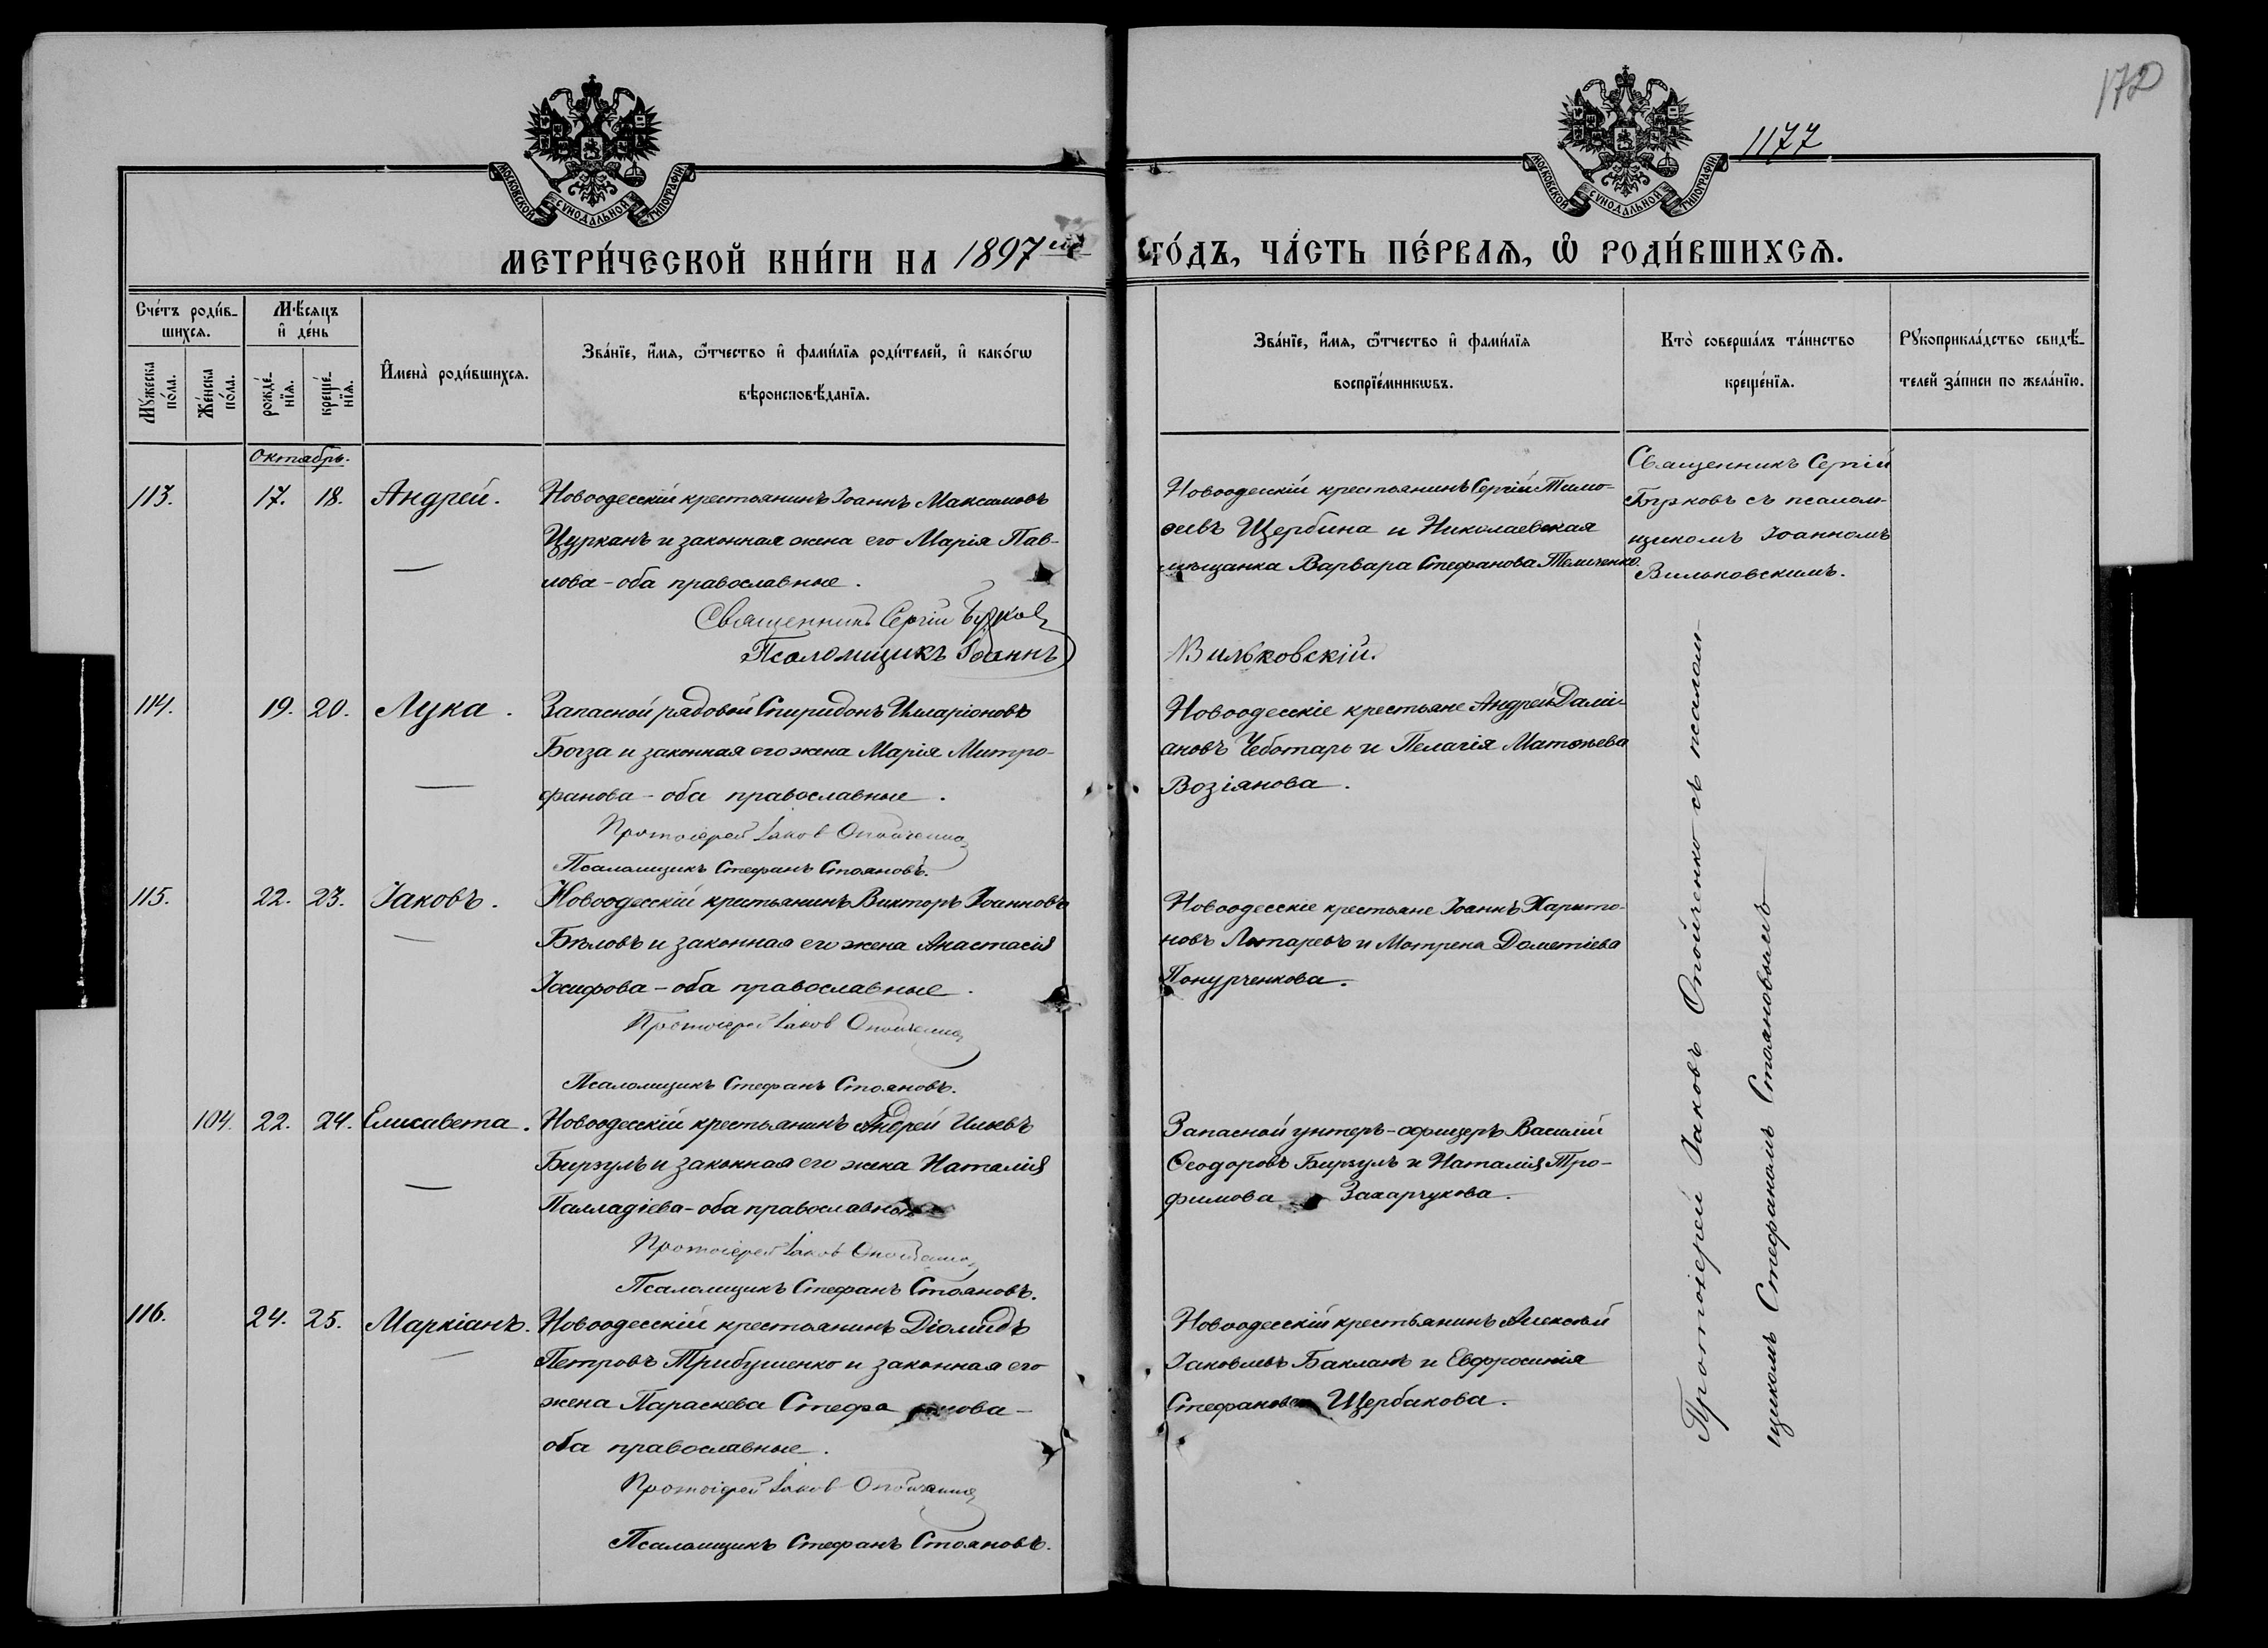 172
1177
МОСКОВСКОЙ СѴНОДАЛЬНОЙ ТИПОГРАФІИ
МОСКОВСКОЙ СѴНОДАЛЬНОЙ ТИПОГРАФІИ
МЕТРИ́ЧЕСКОЙ КНИ́ГИ НА 1897 ый ГО́ДЪ, ЧА́СТЬ ПЕ́РВАѦ, Ѿ РОДИ́ВШИХСѦ.
Сче́тъ роди́в-
шихсѧ.
Мꙋ́жеска по́ла.
Же́нска по́ла.
Мѣ́сѧцъ
и҆ де́нь
рожде́-нїѧ.
креще́-нїѧ.
И҆мена̀ роди́вшихсѧ.
Зва́нїе, и҆́мѧ, ѻ҆́тчество и҆ фами́лїѧ роди́телей, и҆ како́гѡ
вѣроисповѣ́данїѧ.
Зва́нїе, и҆́мѧ, ѻ҆́тчество и҆ фами́лїѧ
воспрїе́мникѡвъ.
Кто̀ соверша́лъ та́инство
креще́нїѧ.
Рꙋкоприкла́дство свидѣ́-
телей за́писи по жела́нїю.
Октябрь.
113. 17. 18. Андрей.
Новоодесскій крестьянинъ Іоаннъ Максимовъ
Цурканъ и законная жена его Марія Пав-
лова - оба православные.
Священникъ Сергій
Псаломщикъ Іоаннъ
Вильковскій.
Новоодесскій крестьянинъ Сергій Тимо-
ѳеевъ Щербина и Николаевская
мѣщанка Варвара Стефанова
Священникъ Сергій
съ псалом-
щикомъ Іоанномъ
Вильковскимъ.
114. 19. 20. Лука.
Запасной рядовой Спиридонъ Иларіоновъ
Богза и законная его жена Марія Митро-
фанова - оба православные.
Протоіерей Іаков Опойченко
Псаломщикъ Стефанъ Стояновъ.
Новоодесскіе крестьяне Андрей Далмі-
ановъ Чеботарь и Пелагія Матѳѣева
Возіянова.
115. 22. 23. Іаковъ.
Новоодесскій крестьянинъ Викторъ Іоанновъ
Бѣловъ и законная его жена Анастасія
Іосифова - оба православные.
Протоіерей Іаков Опойченко
Псаломщикъ Стефанъ Стояновъ.
Новоодесскіе крестьяне Іоаннъ Харито-
новъ и Мотрена Дометіева
Понурченкова.
104. 22. 24. Елисавета.
Новоодесскій крестьянинъ Андрей Ильевъ
Бирзулъ и законная его жена Наталія
Палладіева - оба православные
Протоіерей Іаков Опойченко
Псаломщикъ Стефанъ Стояновъ.
Запасной унтеръ-офицеръ Василій
Ѳеодоровъ Бирзулъ и Наталія Тро-
фимова Захарчукова.
116. 24. 25. Маркіанъ.
Новоодесскій крестьянинъ Діомидъ
Петровъ Трибушенко и законная его
жена Параскева Стефанова -
оба православные.
Протоіерей Іаков Опойченко
Псаломщикъ Стефанъ Стояновъ.
Новоодесскій крестьянинъ Алексѣй
Іаковлевъ Бакланъ и Евфросинія
Стефанова Щербакова.
Протоіерей Іаковъ Опойченко съ псалом-
щикомъ Стефаномъ Стояновымъ